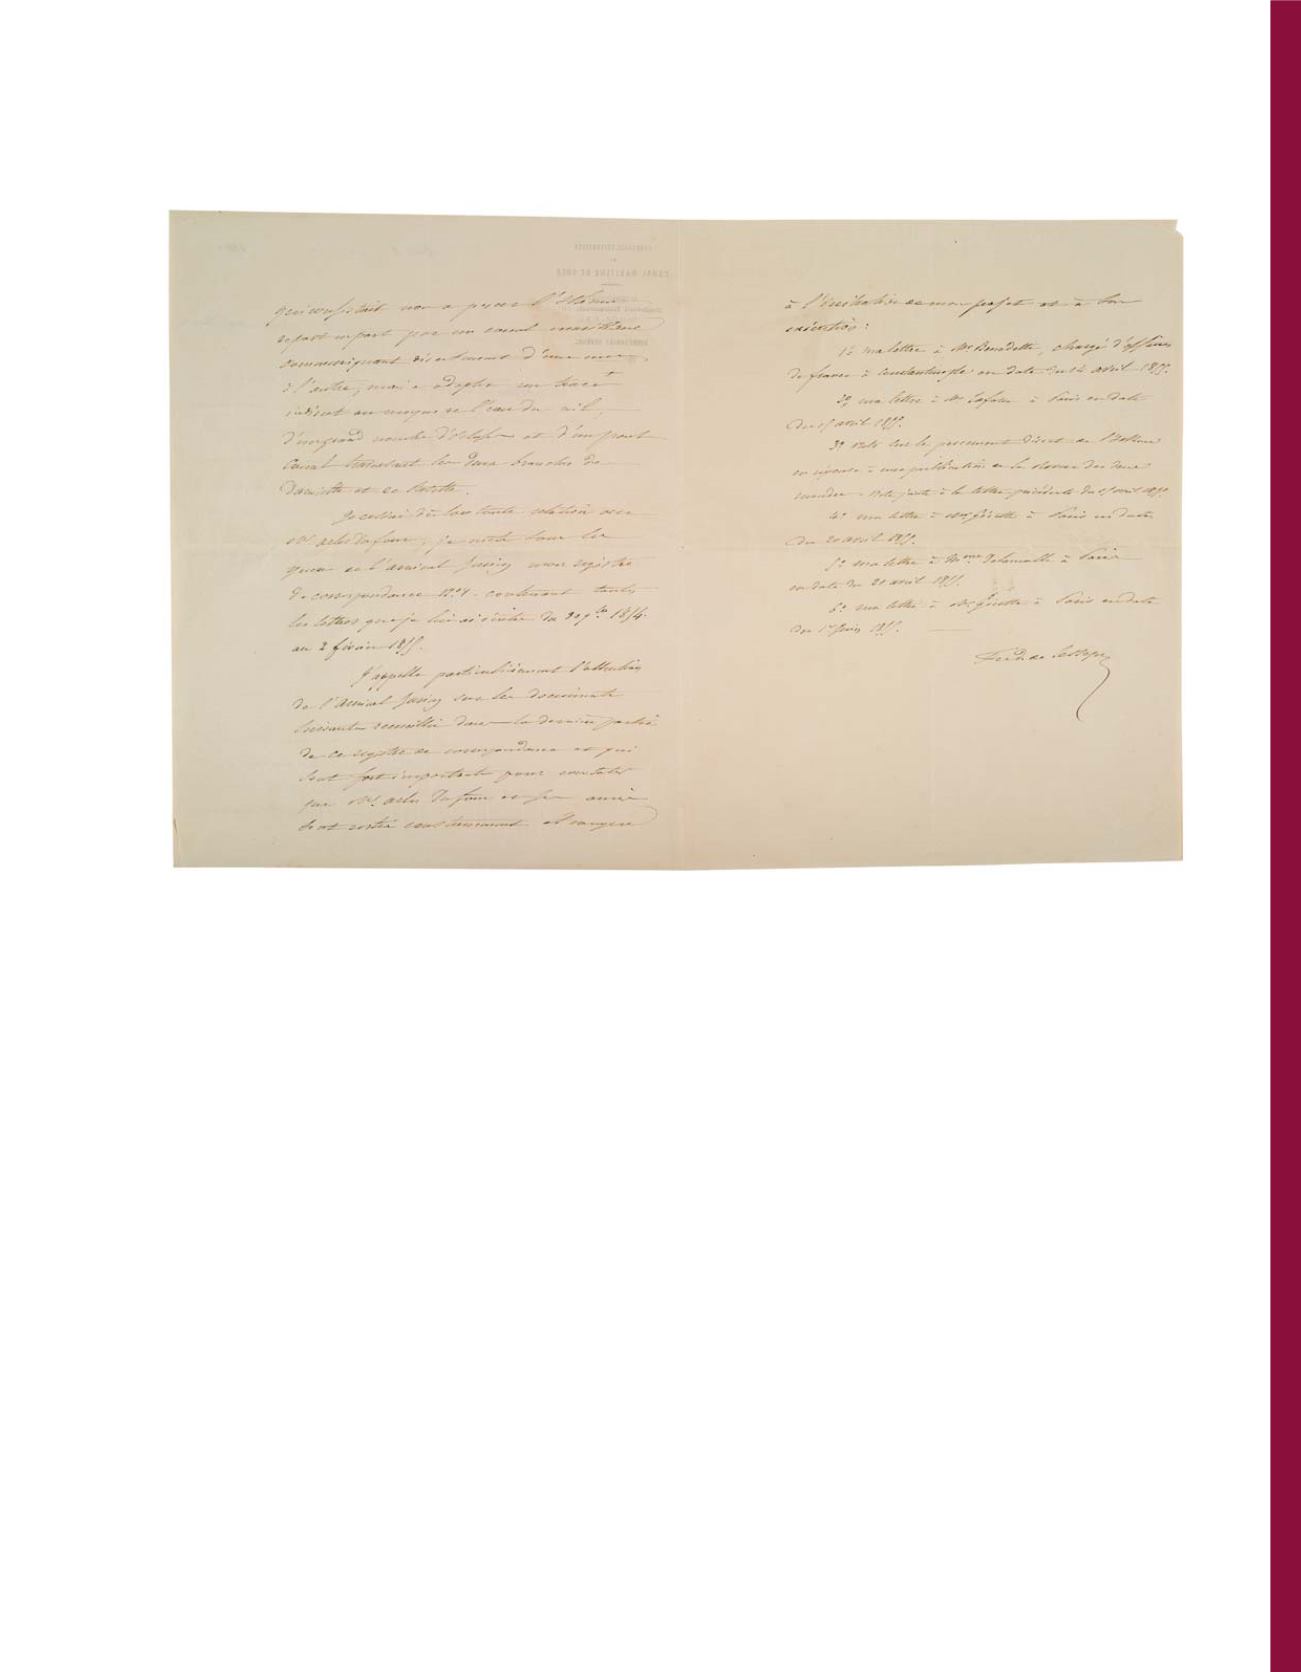 qui consistait non a percer l'Isthme
de part en part par un canal maritime
communiquant directement d'une mer
à l'autre, mais a adopter un tracé
indirect au moyen de l'eau du nil,
d'un grand nombre d'écluses et d'un pont
canal traversant les deux branches de
Damiette et de Rosette.
Je cessai dès lors toute relation avec
Mr. arlès Dufour; je mets sous les
yeux de l'amiral Jurien mon registre
de correspondance No. 1. contenant toutes
les lettres que je lui ai écrites du 30 9bre 1854.
au 2 février 1855.
J'appelle particulièrement l'attention
de l'amiral Jurien sur les documents
suivants recueillis dans la dernière partie
de ce registre de correspondance et qui
sont fort importants pour constater
que Mr. arlès Dufour et ses amis
sont restés constamment étrangers
à l'initiative de mon projet et à son
exécution:
1o. ma lettre à Mr. Benedetti, chargé d'affaires
de france à Constantinople en date du 14 avril 1855.
2o. ma lettre à Mr. à Paris en date
du avril 1855.
3o. note sur le percement direct de l'Isthme
en réponse à une publication de la revue des deux
mondes. note jointe à la lettre précédente du avril 1855.
4o. ma lettre à Mr. à Paris en date
du 20 avril 1855.
5o. ma lettre à Mme. Delamalle à Paris
en date du 21 avril 1855.
6o. ma lettre à Mr. à Paris en date
du 1er Juin 1855.
Ferd de Lesseps
CANAL MARITIME DE SUEZ